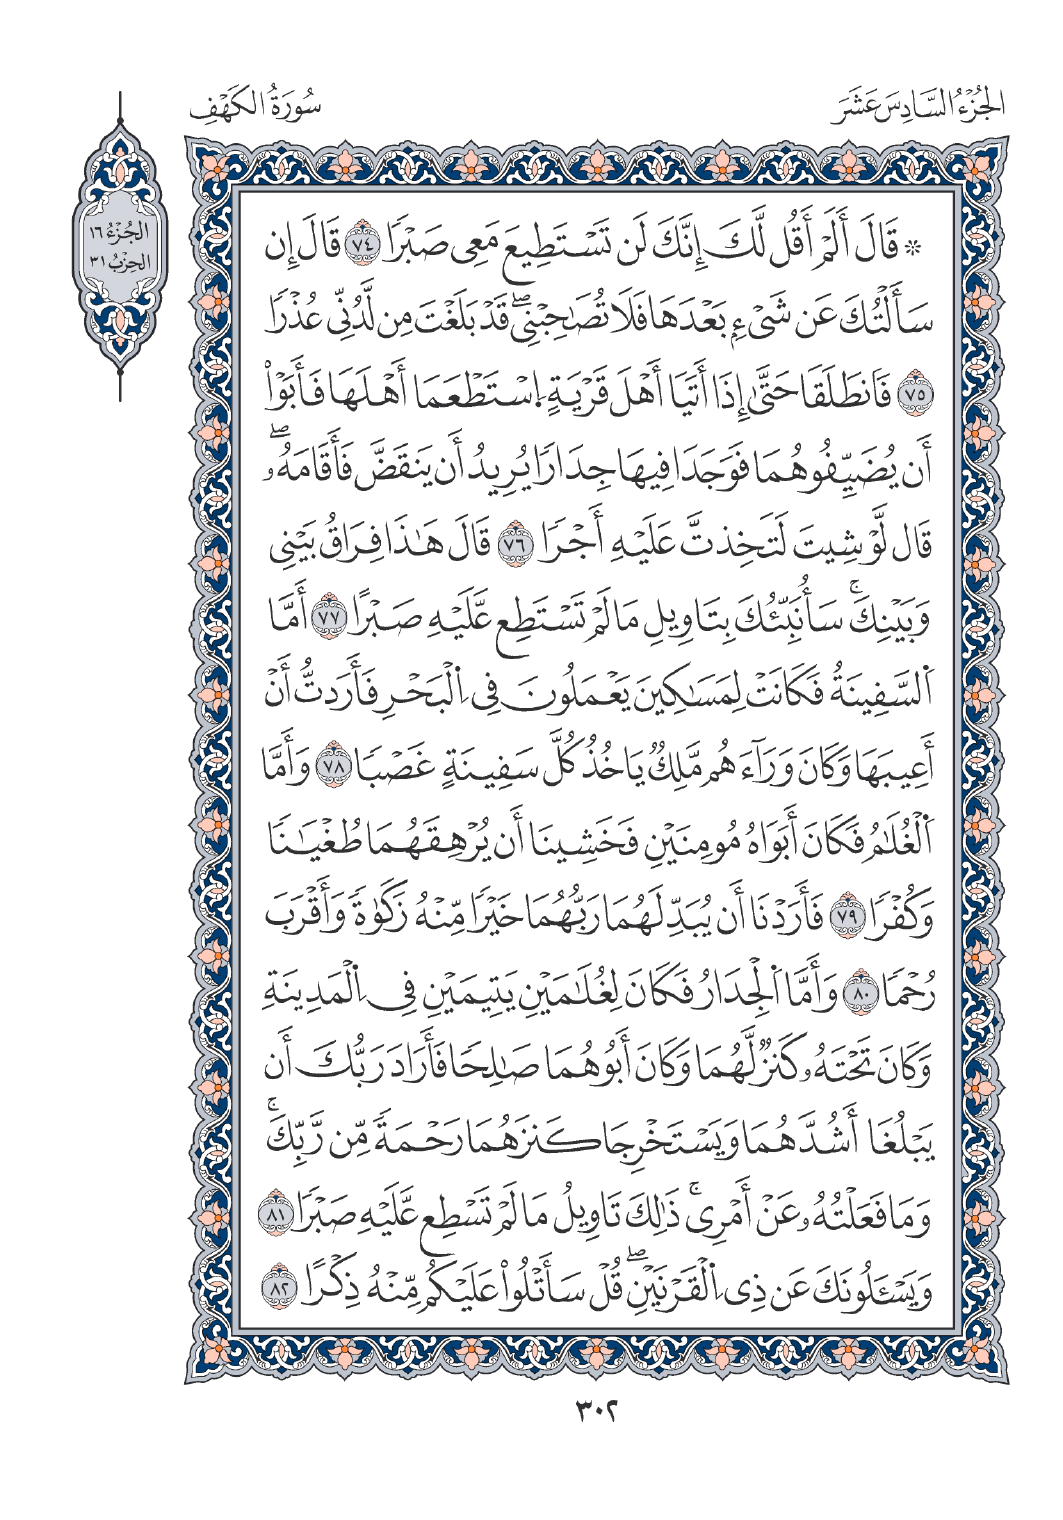 الجُزْءُ السَّادِسَ عَشَرَ
سُورَةُ الكَهْفِ
الجُزْءُ ١٦
الحِزْبُ ٣١
۞ قَالَ أَلَمْ أَقُل لَّكَ إِنَّكَ لَن تَسْتَطِيعَ مَعِى صَبْرًا ٧٤ قَالَ إِن
سَأَلْتُكَ عَن شَىْءِۭ بَعْدَهَا فَلَا تُصَٰحِبْنِىۖ قَدْ بَلَغْتَ مِن لَّدُنِّى عُذْرًا
٧٥ فَٱنطَلَقَا حَتَّىٰ إِذَا أَتَيَا أَهْلَ قَرْيَةٍ ٱسْتَطْعَمَا أَهْلَهَا فَأَبَوْا۟
أَن يُضَيِّفُوهُمَا فَوَجَدَا فِيهَا جِدَارًا يُرِيدُ أَن يَنقَضَّ فَأَقَامَهُۥۖ
قَال لَّوْ شِيتَ لَتَخِذتَّ عَلَيْهِ أَجْرًا ٧٦ قَالَ هَٰذَا فِرَاقُ بَيْنِى
وَبَيْنِكَۚ سَأُنَبِّئُكَ بِتَاوِيلِ مَا لَمْ تَسْتَطِع عَّلَيْهِ صَبْرًا ٧٧ أَمَّا
ٱلسَّفِينَةُ فَكَانَتْ لِمَسَٰكِينَ يَعْمَلُونَ فِى ٱلْبَحْرِ فَأَرَدتُّ أَنْ
أَعِيبَهَا وَكَانَ وَرَآءَهُم مَّلِكٌ يَاخُذُ كُلَّ سَفِينَةٍ غَصْبًا ٧٨ وَأَمَّا
ٱلْغُلَٰمُ فَكَانَ أَبَوَاهُ مُومِنَيْنِ فَخَشِينَا أَن يُرْهِقَهُمَا طُغْيَٰنًا
وَكُفْرًا ٧٩ فَأَرَدْنَا أَن يُبَدِّلَهُمَا رَبُّهُمَا خَيْرًا مِّنْهُ زَكَوٰةً وَأَقْرَبَ
رُحْمًا ٨٠ وَأَمَّا ٱلْجِدَارُ فَكَانَ لِغُلَٰمَيْنِ يَتِيمَيْنِ فِى ٱلْمَدِينَةِ
وَكَانَ تَحْتَهُۥ كَنزٌ لَّهُمَا وَكَانَ أَبُوهُمَا صَٰلِحًا فَأَرَاد رَبُّكَ أَن
يَبْلُغَا أَشُدَّهُمَا وَيَسْتَخْرِجَا كَنزَهُمَا رَحْمَةً مِّن رَّبِّكَۚ
وَمَا فَعَلْتُهُۥ عَنْ أَمْرِىۚ ذَٰلِكَ تَاوِيلُ مَا لَمْ تَسْطِع عَّلَيْهِ صَبْرًا ٨١
وَيَسْـَٔلُونَكَ عَن ذِى ٱلْقَرْنَيْنِۖ قُلْ سَأَتْلُوا۟ عَلَيْكُم مِّنْهُ ذِكْرًا ٨٢
٣٠٢